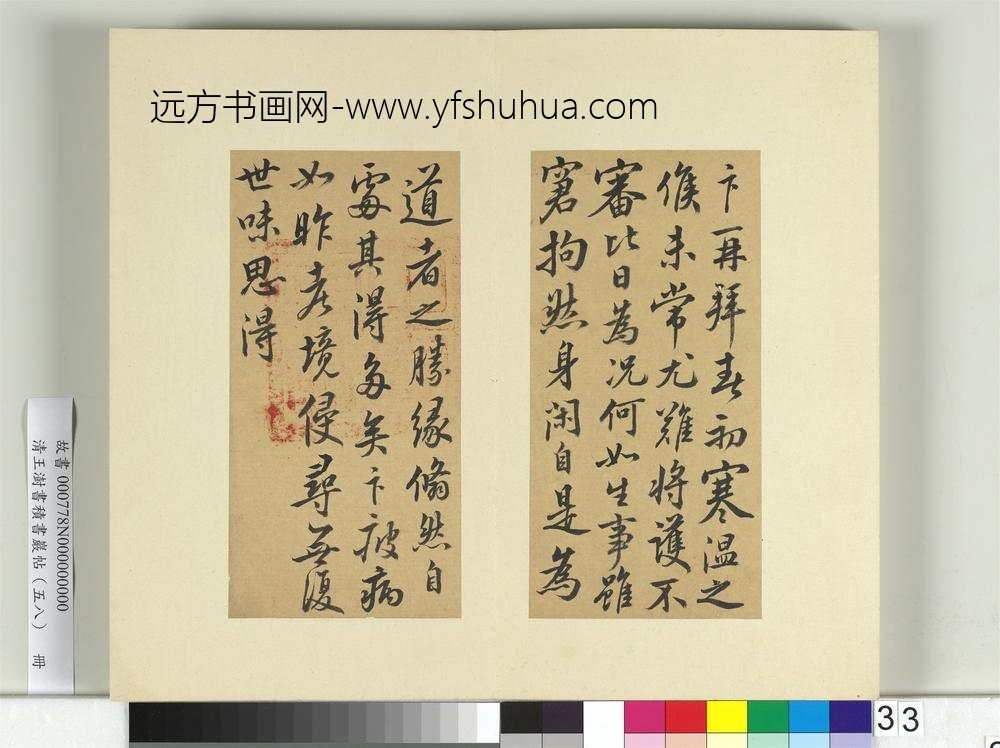 远方书画网-www.yfshuhua.com
卞再拜春初寒温之
候未常尤難将護不
審比日為况何如生事雖
窘拘然身闲自是為
道者之勝緣翛然自
處其得多矣卞疲病
如昨老境侵尋無復
世味思得
故書 000778N000000000
清王澍書積書巖帖（五八） 冊
33